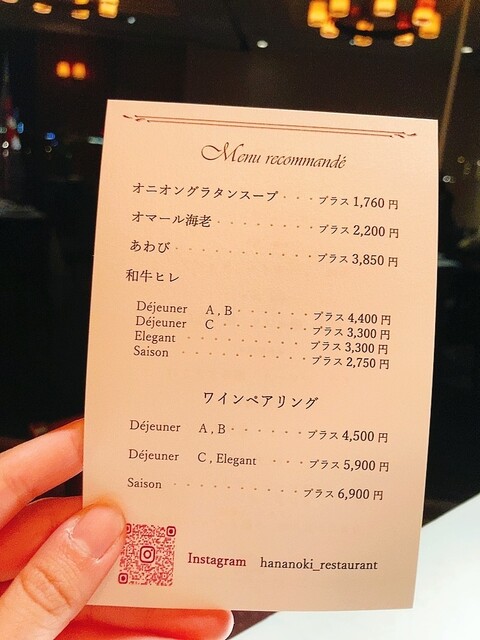 Menu recommandé
オニオングラタンスープ・・・プラス 1,760 円
オマール海老・・・・・・・・・プラス 2,200 円
あわび・・・・・・・・・・・・プラス 3,850 円
和牛ヒレ
Déjeuner A , B・・・・・・プラス 4,400 円
Déjeuner C・・・・・・・プラス 3,300 円
Elegant ・・・・・・・・・プラス 3,300 円
Saison ・・・・・・・・・プラス 2,750 円
ワインペアリング
Déjeuner A , B・・・・・・プラス 4,500 円
Déjeuner C , Elegant ・・・プラス 5,900 円
Saison ・・・・・・・・・プラス 6,900 円
Instagram hananoki_restaurant